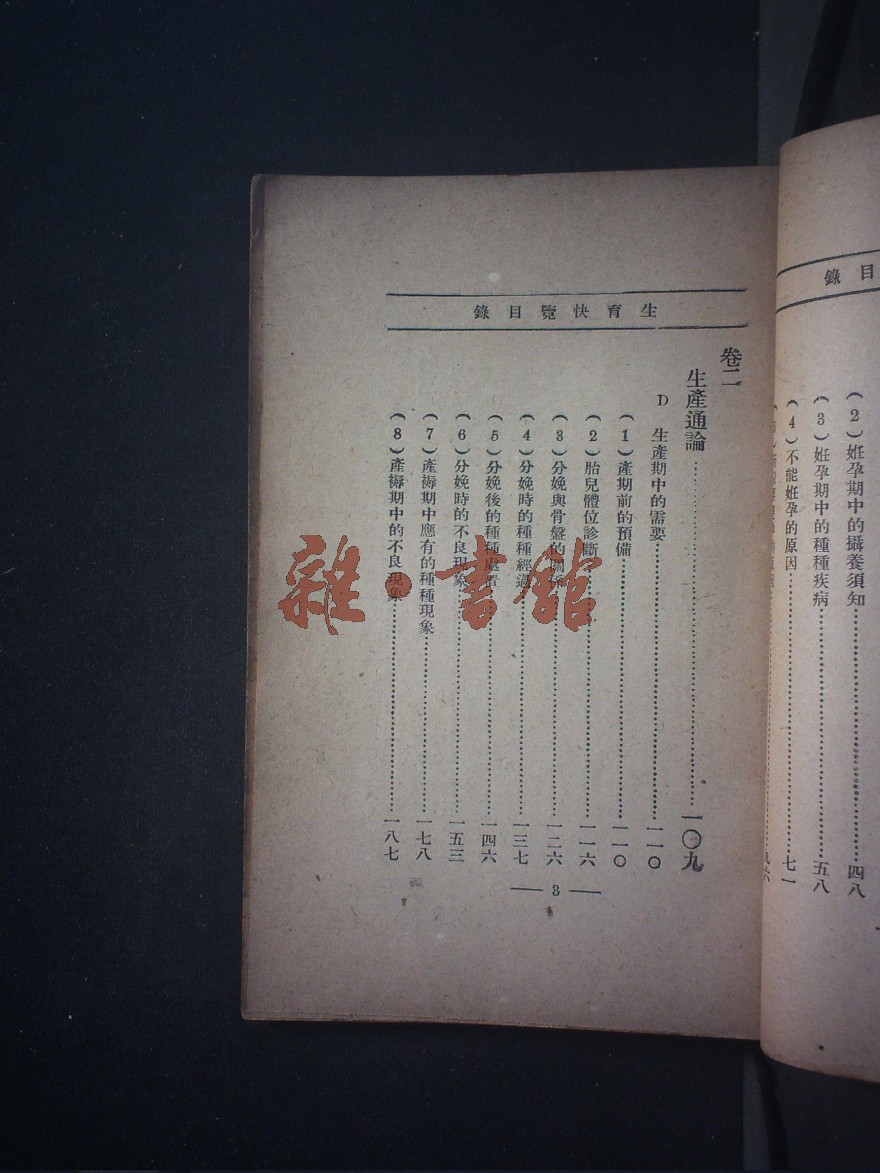 錄目
(2)姙孕期中的攝養須知……四八
(3)姙孕期中的種種疾病……五八
(4)不能姙孕的原因……七一
九六
生育快覽目錄
卷二
生產通論……一〇九
D 生產期中的需要……一一〇
(1)產期前的預備……一一〇
(2)胎兒體位診斷……一一六
(3)分娩與骨盤的關係……一二六
(4)分娩時的種種經過……一三七
(5)分娩後的種種處置……一四六
(6)分娩時的不良現象……一五三
(7)產褥期中應有的種種現象……一七八
(8)產褥期中的不良現象……一八七
— 3 —
雜·書館